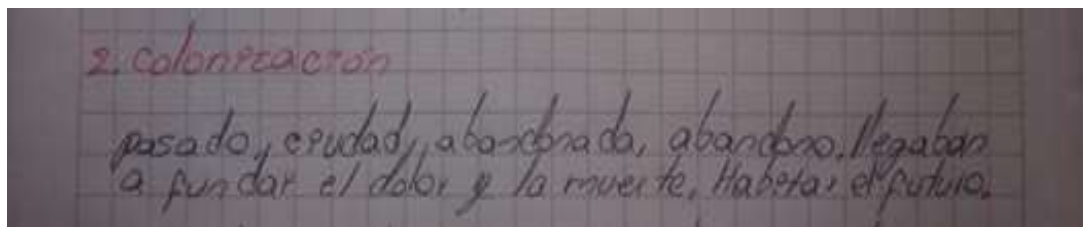 2. Colonización
pasado, ciudad, abandonada, abandono. llegaban
a fundar el dolor y la muerte, Habitar el futuro.